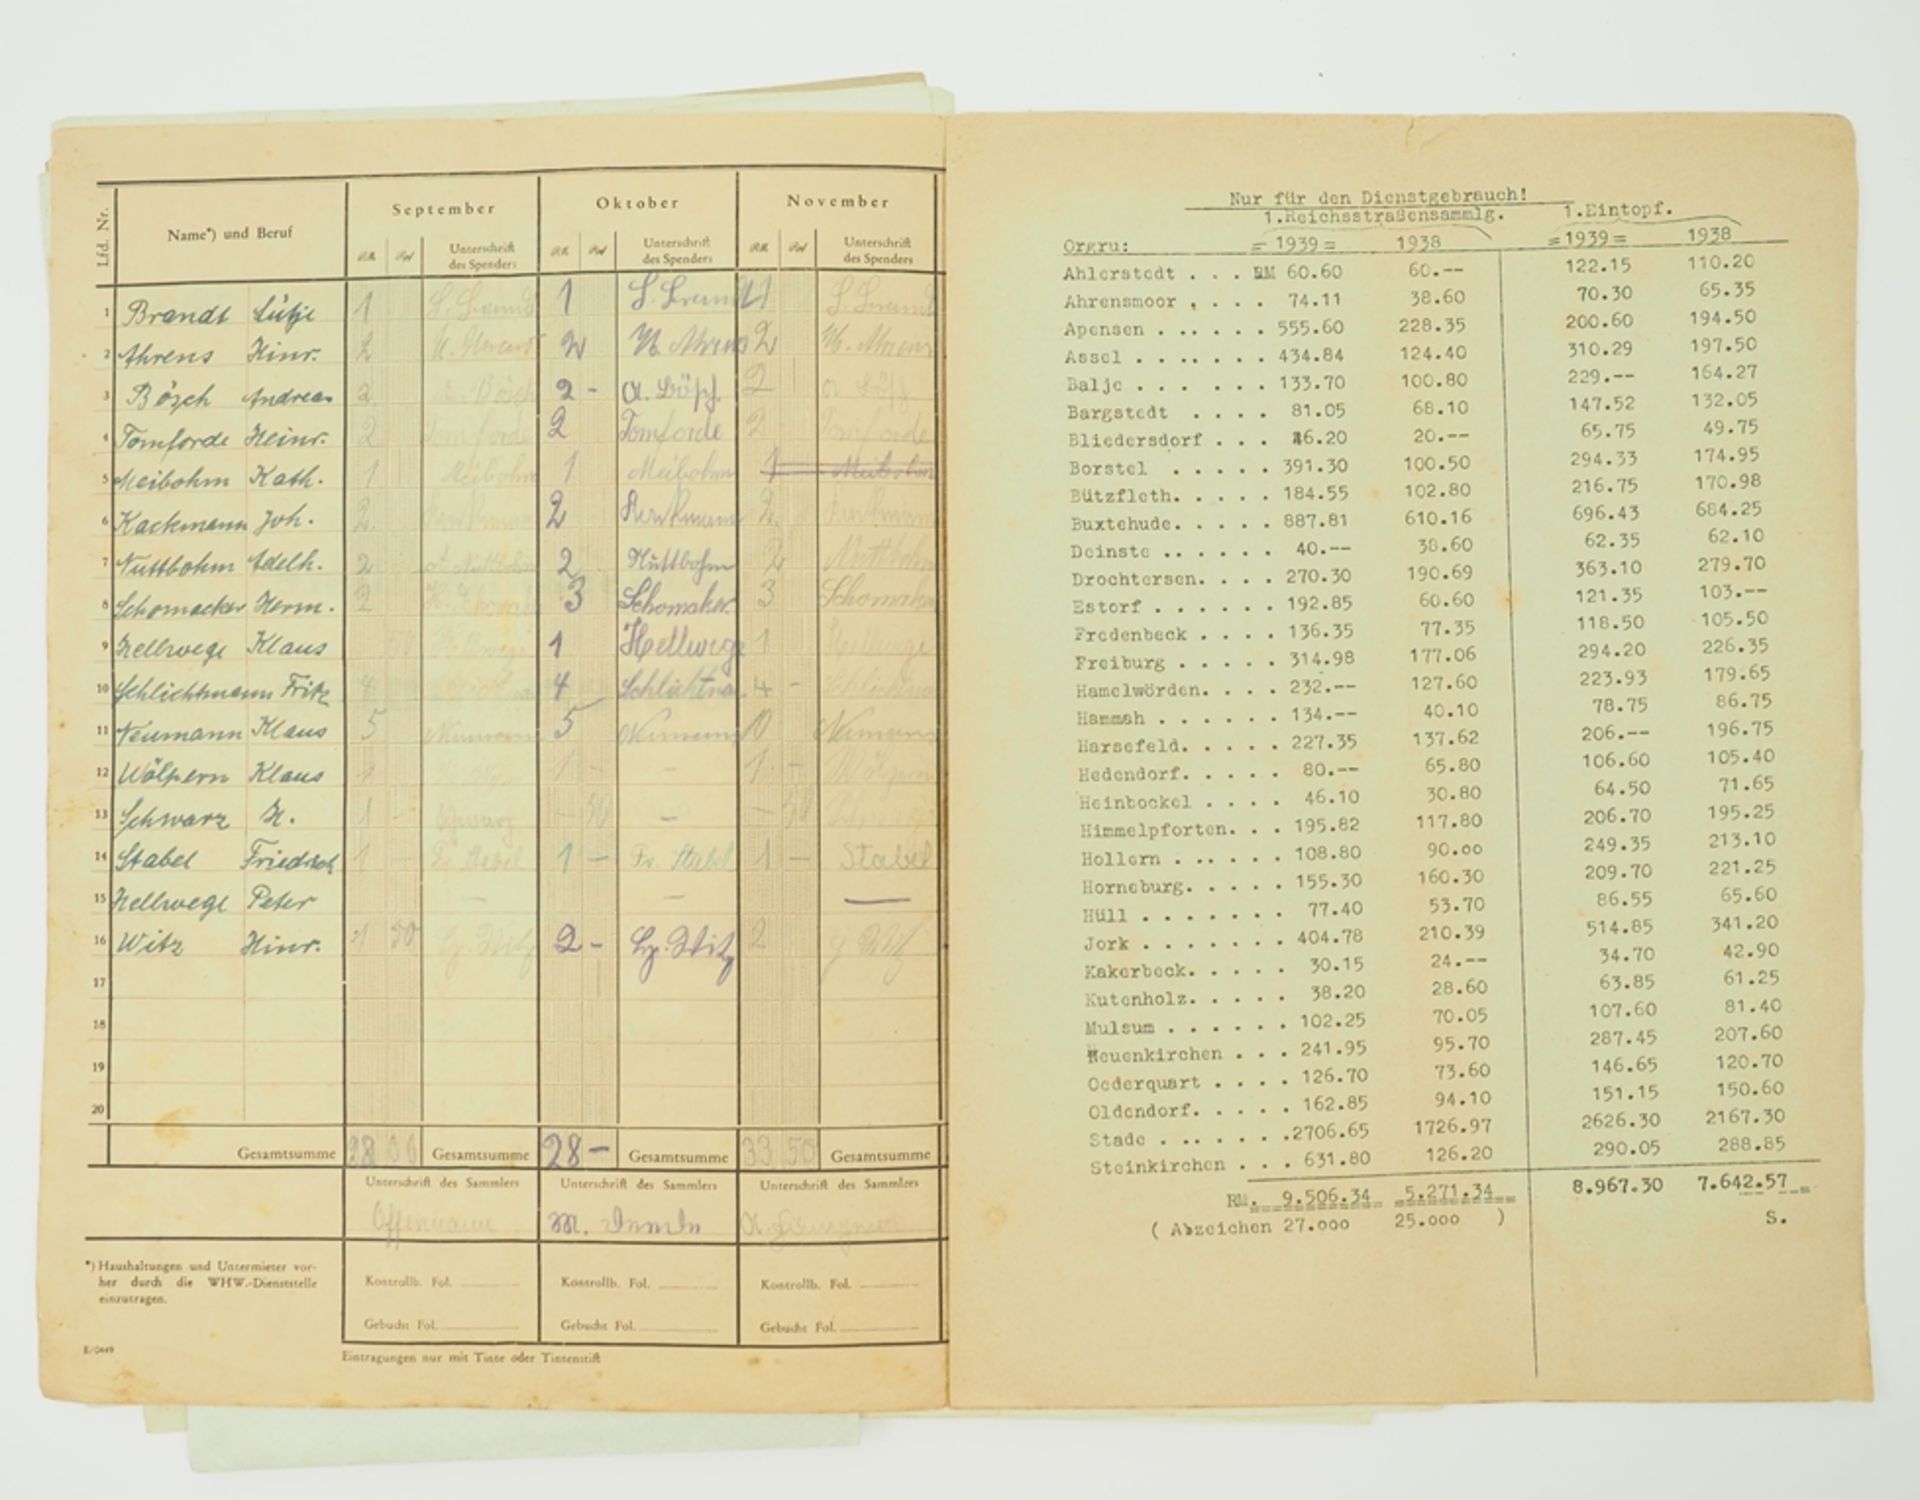 Lfd. Nr.
Name*) und Beruf
September
Oktober
November
RM Unterschrift des Spenders
RM Unterschrift des Spenders
RM Unterschrift des Spenders
1 Brandt Lütje 1 1 S. Brandt 1
2 Ahrens Hinr. 2 H. Ahrens 2 H. Ahrens 2 H. Ahrens
3 Bösch Andreas 2 Bösch 2 - A. Bösch 2
4 Tomforde Heinr. 2 Tomforde 2 Tomforde 2 Tomforde
5 Meibohm Kath. 1 Meibohm 1 Meibohm 1 Meibohm
6 Kackmann Joh. 2 2 2
7 Nuttbohm Adelh. 2 Nuttbohm 2 Nuttbohm 2 Nuttbohm
8 Schomacker Herm. 2 3 Schomaker 3 Schomaker
9 Hellwege Klaus 50 Hellwege 1 Hellwege 1 Hellwege
10 Schlichtmann Fritz 4 4 4 -
11 Neumann Klaus 5 Neumann 5 Neumann Neumann
12 Wölpern Klaus 1 1 - - 1 - Wölpern
13 Schwarz H. 1 - Schwarz - 50 - - 50
14 Stabel Friedrich 1 - Fr. Stabel 1 - Fr. Stabel 1 - Stabel
15 Hellwege Peter - - —
16 Witz Hinr. 1 50 Hg. Witz 2 - Hg. Witz 2 Witz
17
18
19
20
Gesamtsumme 28 Gesamtsumme 28 - Gesamtsumme 33 50 Gesamtsumme
Unterschrift des Sammlers Unterschrift des Sammlers Unterschrift des Sammlers
*) Haushaltungen und Untermieter vor-
her durch die WHW.-Dienststelle
einzutragen.
Kontrollb. Fol. Kontrollb. Fol. Kontrollb. Fol.
Gebucht Fol. Gebucht Fol. Gebucht Fol.
Eintragungen nur mit Tinte oder Tintenstift
Nur für den Dienstgebrauch!
1.Reichsstraßensammlg. 1.Eintopf.
Orgru: =1939= 1938 =1939= 1938
Ahlerstedt . . . RM 60.60 60.-- 122.15 110.20
Ahrensmoor . . . . 74.11 38.60 70.30 65.35
Apensen . . . . . . 555.60 228.35 200.60 194.50
Assel . . . . . . . 434.84 124.40 310.29 197.50
Balje . . . . . . 133.70 100.80 229.-- 164.27
Bargstedt . . . . 81.05 68.10 147.52 132.05
Bliedersdorf . . . 46.20 20.-- 65.75 49.75
Borstel . . . . . 391.30 100.50 294.33 174.95
Bützfleth. . . . . 184.55 102.80 216.75 170.98
Buxtehude. . . . . 887.81 610.16 696.43 684.25
Deinste . . . . . . 40.-- 38.60 62.35 62.10
Drochtersen. . . . 270.30 190.69 363.10 279.70
Estorf . . . . . . 192.85 60.60 121.35 103.--
Fredenbeck . . . . 136.35 77.35 118.50 105.50
Freiburg . . . . . 314.98 177.06 294.20 226.35
Hamelwörden. . . . 232.-- 127.60 223.93 179.65
Hammah . . . . . . 134.-- 40.10 78.75 86.75
Harsefeld. . . . . 227.35 137.62 206.-- 196.75
Hedendorf. . . . . 80.-- 65.80 106.60 105.40
Heinbockel . . . . 46.10 30.80 64.50 71.65
Himmelpforten. . . 195.82 117.80 206.70 195.25
Hollern . . . . . 108.80 90.oo 249.35 213.10
Horneburg. . . . . 155.30 160.30 209.70 221.25
Hüll . . . . . . . 77.40 53.70 86.55 65.60
Jork . . . . . . . 404.78 210.39 514.85 341.20
Kakerbeck. . . . . 30.15 24.-- 34.70 42.90
Kutenholz. . . . . 38.20 28.60 63.85 61.25
Mulsum . . . . . . 102.25 70.05 107.60 81.40
Neuenkirchen . . . 241.95 95.70 287.45 207.60
Oederquart . . . . 126.70 73.60 146.65 120.70
Oldendorf. . . . . 162.85 94.10 151.15 150.60
Stade . . . . . . .2706.65 1726.97 2626.30 2167.30
Steinkirchen . . . 631.80 126.20 290.05 288.85
RM. 9.506.34 5.271.34 8.967.30 7.642.57
( Abzeichen 27.ooo 25.ooo ) S.